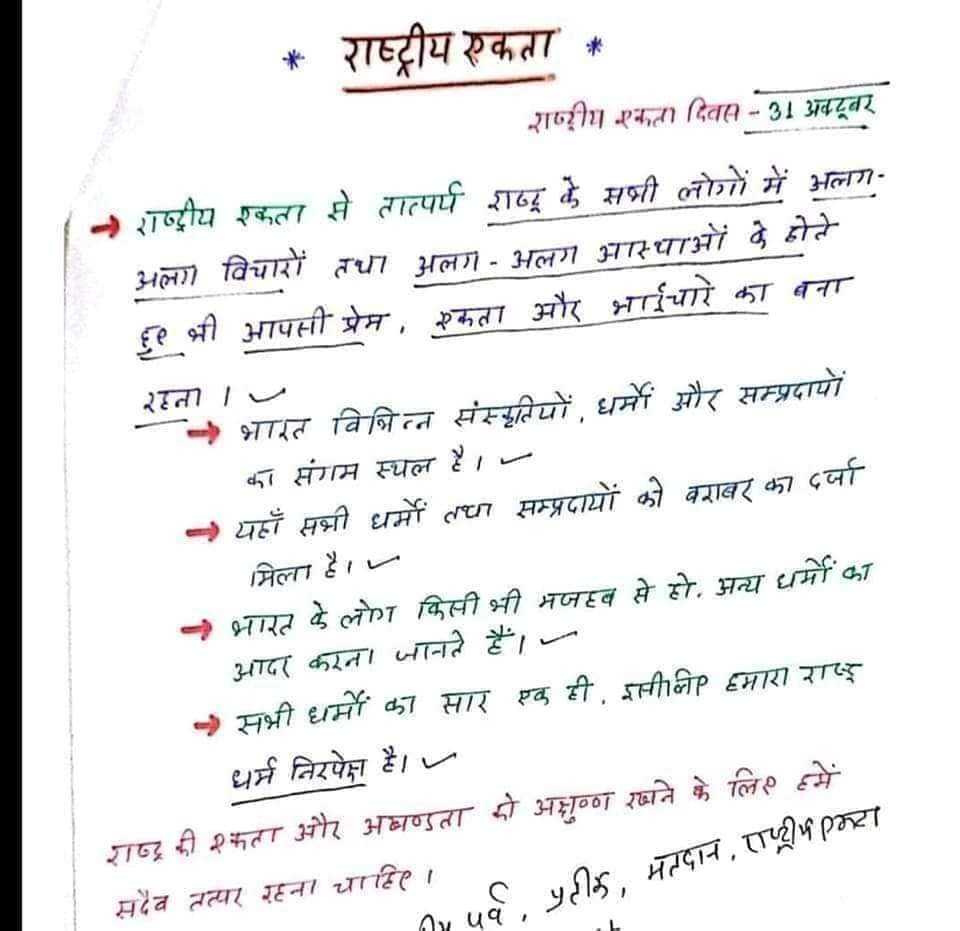 * राष्ट्रीय एकता *
राष्ट्रीय एकता दिवस - 31 अक्टूबर
→ राष्ट्रीय एकता से तात्पर्य राष्ट्र के सभी लोगों में अलग-
अलग विचारों तथा अलग - अलग आस्थाओं के होते
हुए भी आपसी प्रेम, एकता और भाईचारे का बना
रहना । ✓
→ भारत विभिन्न संस्कृतियों, धर्मों और सम्प्रदायों
का संगम स्थल है। ✓
→ यहाँ सभी धर्मों तथा सम्प्रदायों को बराबर का दर्जा
मिला है। ✓
→ भारत के लोग किसी भी मजहब से हो, अन्य धर्मों का
आदर करना जानते हैं। ✓
→ सभी धर्मों का सार एक ही, इसीलिए हमारा राष्ट्र
धर्म निरपेक्ष है। ✓
राष्ट्र की एकता और अखण्डता को अक्षुण्ण रखने के लिए हमें
सदैव तत्पर रहना चाहिए ।
पर्व, प्रतीक, मतदान, राष्ट्रीय एकता